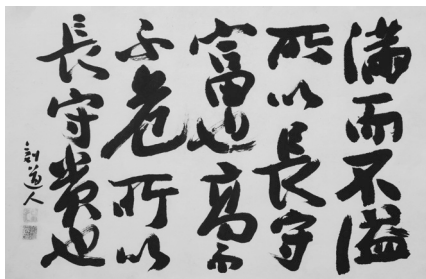 満而不溢
所以長守
富也高而
不危所以
長守貴也
道人